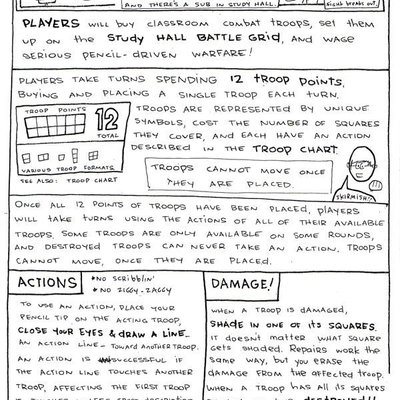 AND THERE'S A SUB IN STUDY HALL.
FIGHT BREAKS OUT.
PLAYERS WILL BUY CLASSROOM COMBAT TROOPS, SET THEM
UP ON THE STUDY HALL BATTLE GRID, AND WAGE
SERIOUS PENCIL-DRIVEN WARFARE!
PLAYERS TAKE TURNS SPENDING 12 TROOP POINTS,
BUYING AND PLACING A SINGLE TROOP EACH TURN.
TROOP POINTS
12
TOTAL
VARIOUS TROOP FORMATS
SEE ALSO: TROOP CHART
TROOPS ARE REPRESENTED BY UNIQUE
SYMBOLS, COST THE NUMBER OF SQUARES
THEY COVER, AND EACH HAVE AN ACTION
DESCRIBED IN THE TROOP CHART.
TROOPS CANNOT MOVE ONCE
THEY ARE PLACED.
SKIRMISH!
ONCE ALL 12 POINTS OF TROOPS HAVE BEEN PLACED, PLAYERS
WILL TAKE TURNS USING THE ACTIONS OF ALL OF THEIR AVAILABLE
TROOPS. SOME TROOPS ARE ONLY AVAILABLE ON SOME ROUNDS,
AND DESTROYED TROOPS CAN NEVER TAKE AN ACTION. TROOPS
CANNOT MOVE, ONCE THEY ARE PLACED.
ACTIONS
*NO SCRIBBLIN'
*NO ZIGGY-ZAGGY
TO USE AN ACTION, PLACE YOUR
PENCIL TIP ON THE ACTING TROOP,
CLOSE YOUR EYES & DRAW A LINE.
AN ACTION LINE - TOWARD ANOTHER TROOP.
AN ACTION IS SUCCESSFUL IF
THE ACTION LINE TOUCHES ANOTHER
TROOP, AFFECTING THE FIRST TROOP
DAMAGE!
WHEN A TROOP IS DAMAGED,
SHADE IN ONE OF ITS SQUARES.
IT DOESN'T MATTER WHAT SQUARE
GETS SHADED. REPAIRS WORK THE
SAME WAY, BUT YOU ERASE THE
DAMAGE FROM THE AFFECTED TROOP.
WHEN A TROOP HAS ALL ITS SQUARES